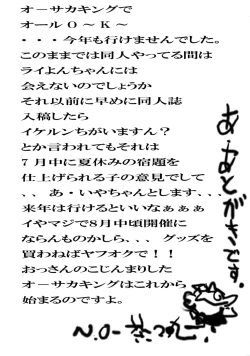 オーサカキングで
オールO～K～
・・・今年も行けませんでした。
このままでは同人やってる間は
ライよんちゃんには
会えないのでしょうか
それ以前に早めに同人誌
入稿したら
イケルンちがいますん？
とか言われてもそれは
7月中に夏休みの宿題を
仕上げられる子の意見でして
、、あ・いやちゃんとします、、、
来年は行けるといいなぁぁぁ
イヤマジで8月中頃開催に
ならんものかしら、、、グッズを
買わねばヤフオクで！！
おっさんのこじんまりした
オーサカキングはこれから
始まるのですよ。
あ・あとがきです。